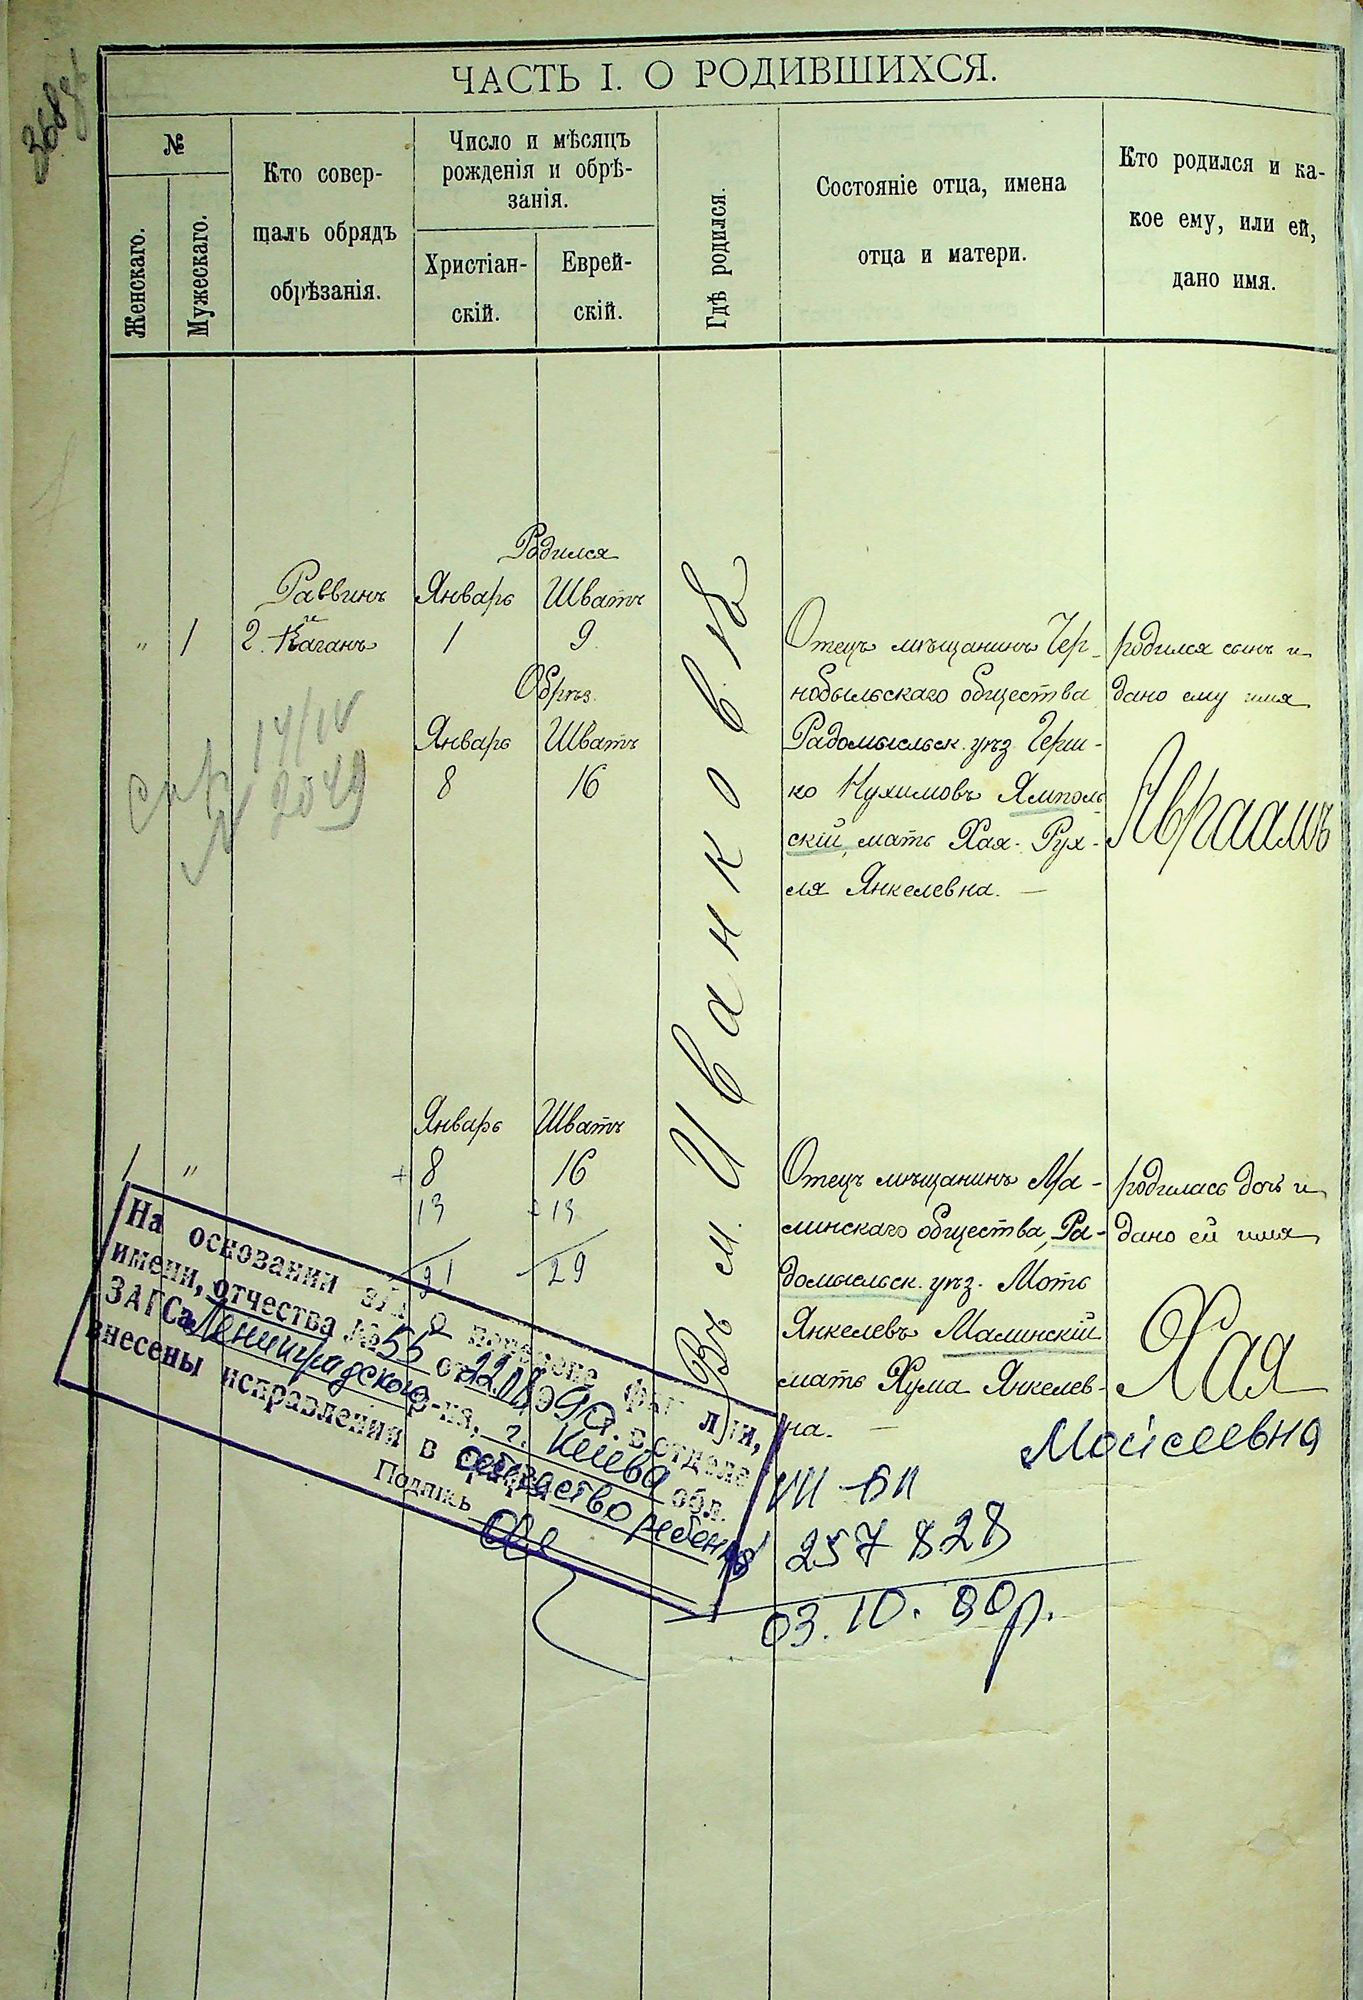 ЧАСТЬ I. О РОДИВШИХСЯ.
№
Женскаго.
Мужескаго.
Кто совер-
шалъ обрядъ
обрѣзанія.
Число и мѣсяцъ
рожденія и обрѣ-
занія.
Христіан-
скій.
Еврей-
скій.
Гдѣ родился.
Состояніе отца, имена
отца и матери.
Кто родился и ка-
кое ему, или ей,
дано имя.
Родился
Раввинъ Январь Шватъ
" 1 2. Каганъ 1 9
Обрѣз.
Январь Шватъ
8 16
Въ м. Иванковѣ
Отецъ мѣщанинъ Чер-
нобыльскаго общества
Радомысльск. уѣз. Герш-
ко Нухимовъ Ямполь-
скій, мать Хая-Рух-
ля Янкелевна. —
родился сынъ и
дано ему имя
Авраамъ
14/IV
2049
Январь Шватъ
1 " 8 16
13 13
21 29
Отецъ мѣщанинъ Ма-
линскаго общества, Ра-
домысльск. уѣз. Моть
Янкелевъ Малинскій
мать Хума Янкелев-
на. —
родилась дочь и
дано ей имя
Хая
Моисеевна
На основании о перемене фамилии,
имени, отчества № 55 от в отделе
ЗАГСа Ленинградского р-на, г. Киева обл.
внесены исправления в отчество ребенка
Подпись
257828
03.10.90р.